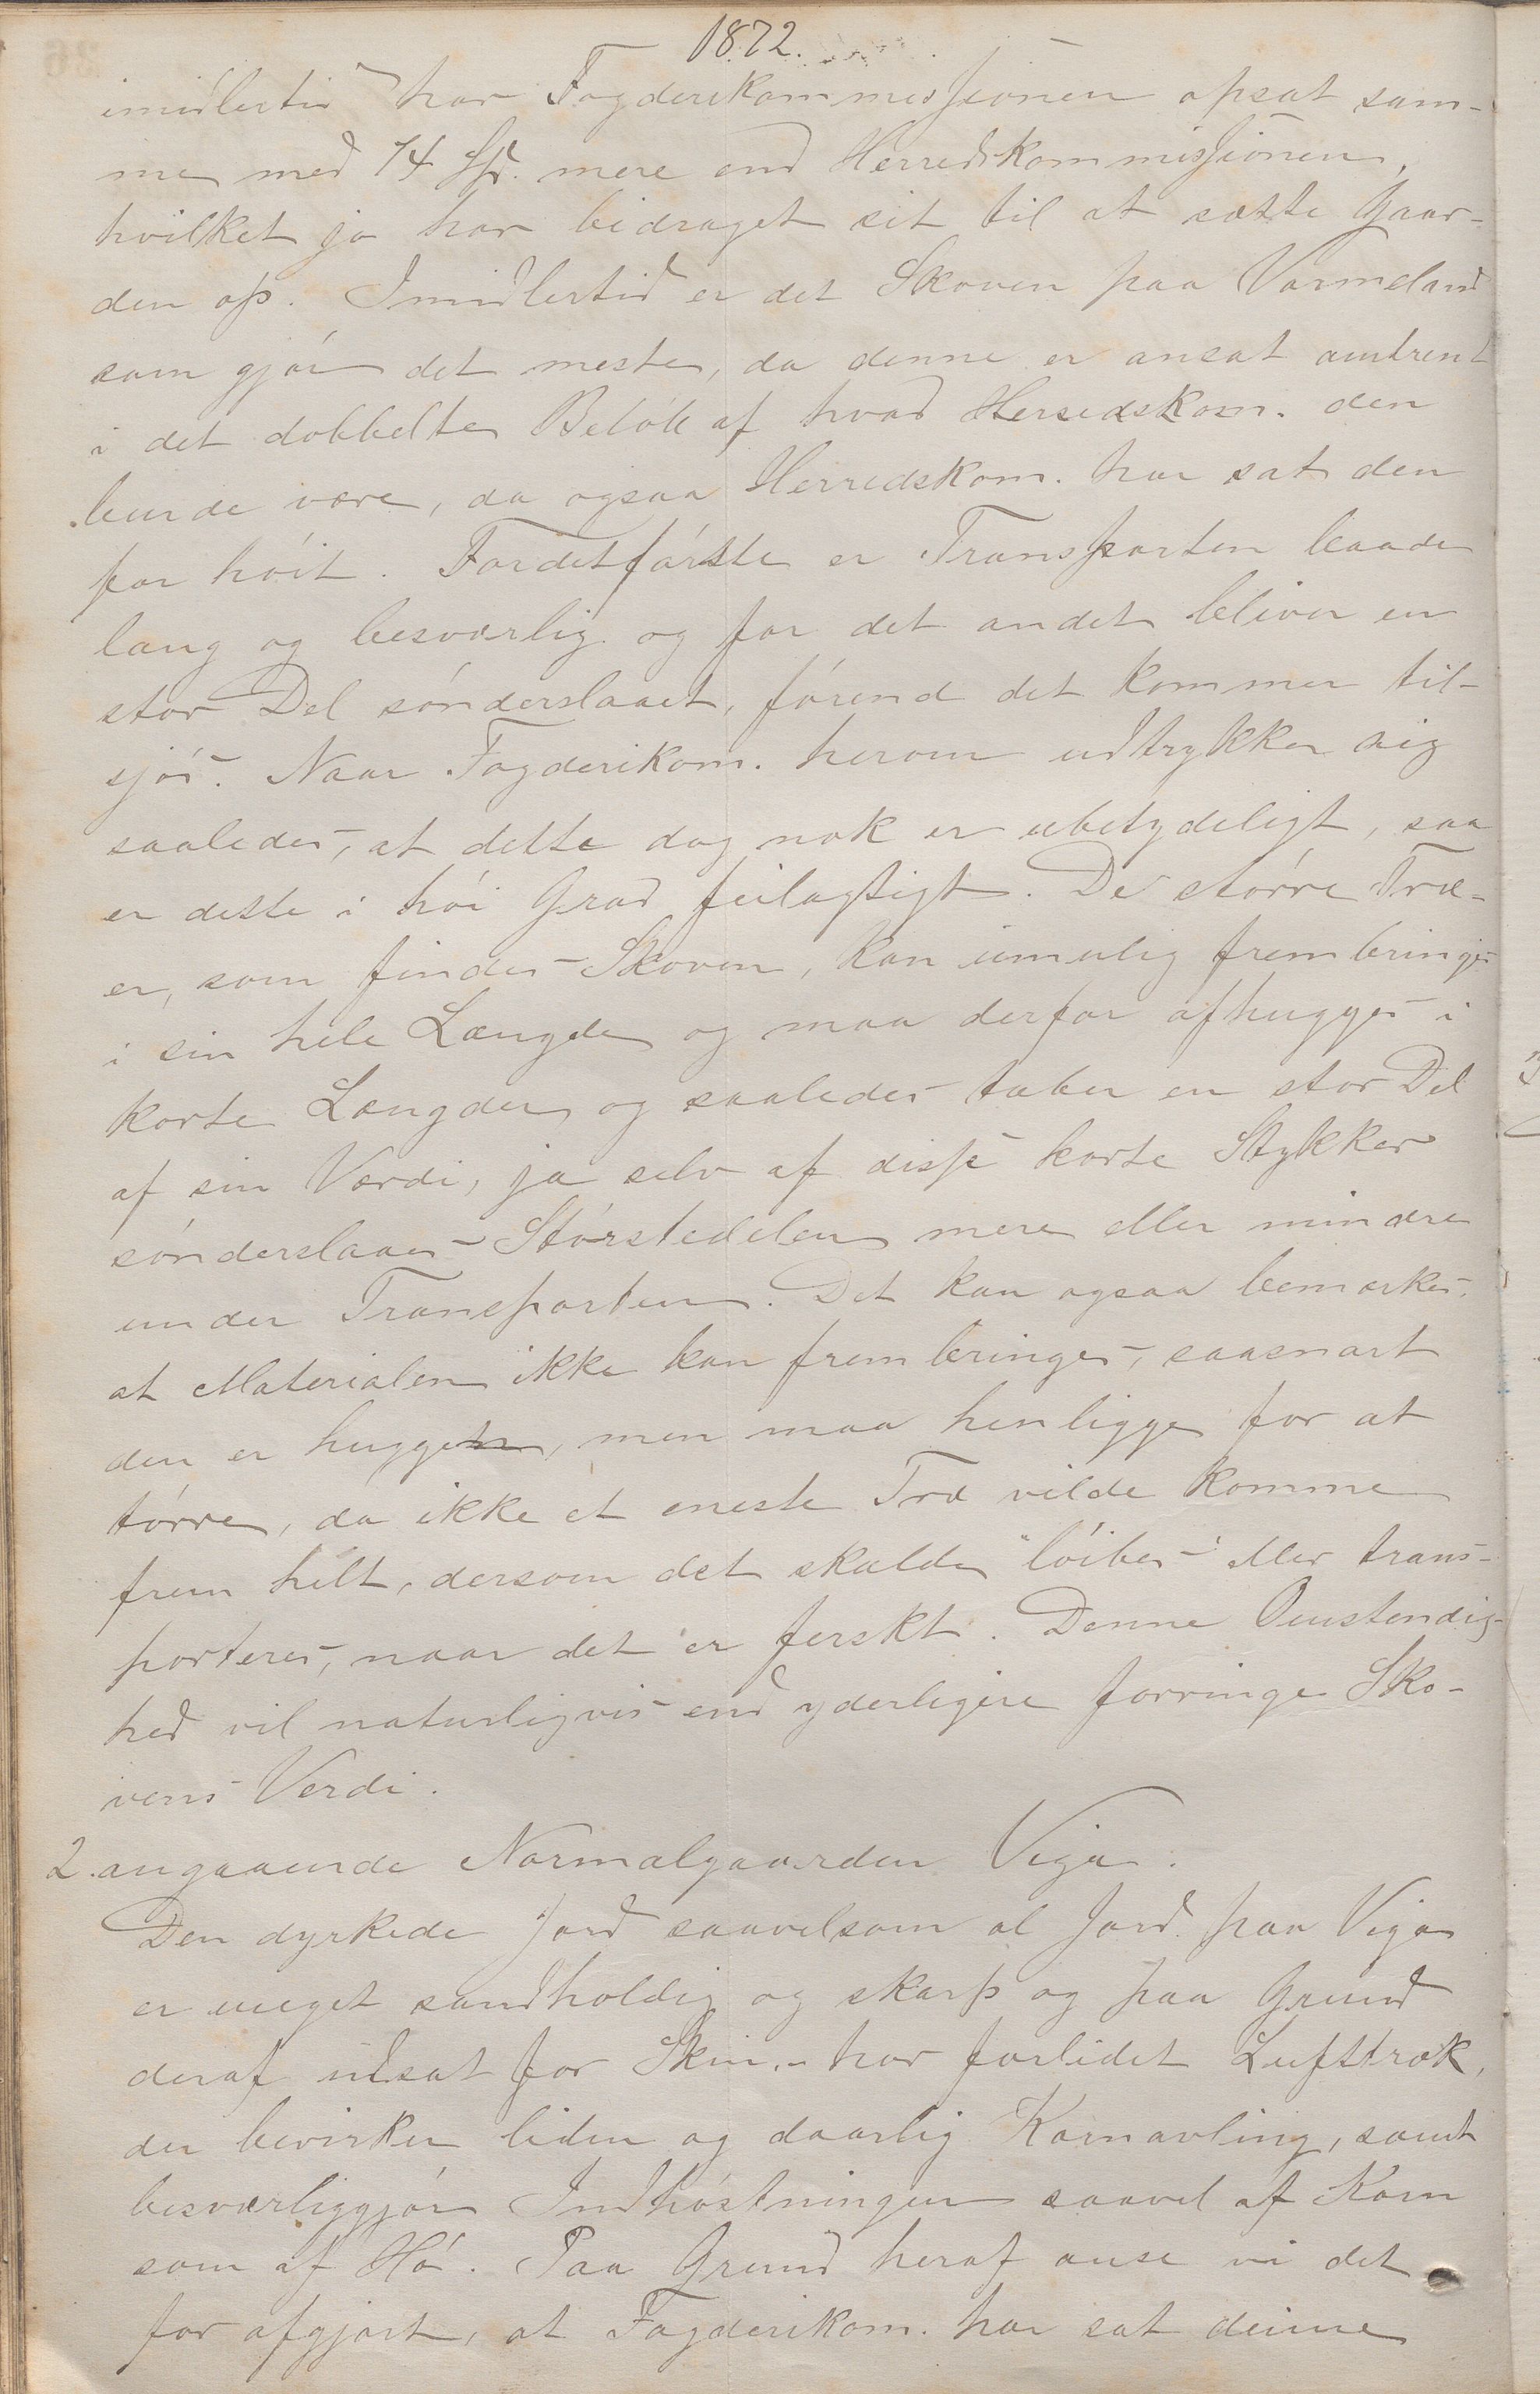 1872.
imidlertid har Fogderikommissionen opsat sam-
me med 14 Spd. mere end Herredskommissionen,
hvilket jo har bidraget sit til at sætte Gaar-
den op. Imidlertid er det Skoven paa Varmeland
som gjór det meste, da denne er ansat omtrent
i det dobbelte Belób af hvad Herredskom. den
burde være, da ogsaa Herredskom. har sat den
for hóit. Fordetfórste er Transporten baade
lang og besværlig og for det andet bliver en
stor Del sónderslaaet, fórend det kommer til-
sjós. Naar Fogderikom. herom udtrykker sig
saaledes, at dette dog nok er ubetydeligt, saa
er dette i hói Grad feilagtigt. De stórre Træ-
er, som findes i Skoven, kan umulig frembringes
i sin hele Længde og maa derfor afhugges i
korte Længder og saaledes taber en stor Del
af sin Værdi, ja selv af disse korte Stykker
sónderslaaes Stórstedelen mere eller mindre
under Transporten. Det kan ogsaa bemærkes,
at Materialen ikke kan frembringes, saasnart
den er hugget, men maa henligge for at
tórre, da ikke et eneste Træ vilde komme
frem helt, dersom det skulde "lóibes" eller trans-
porteres, naar det er ferskt. Denne Omstendig-
hed vil naturligvis end yderligere forringe Sko-
vens Verdi.
2. angaaende Normalgaarden Viga.
Den dyrkede Jord saavelsom al Jord paa Viga
er meget sandholdig og skarp og paa Grund
deraf udsat for Skin, har forlidet Lufttræk,
der bevirker liden og daarlig Kornavling, samt
besværliggjór Indhóstningen saavel af Korn
som af Hó. Paa Grund heraf anse vi det
for afgjort, at Fogderikom. har sat denne